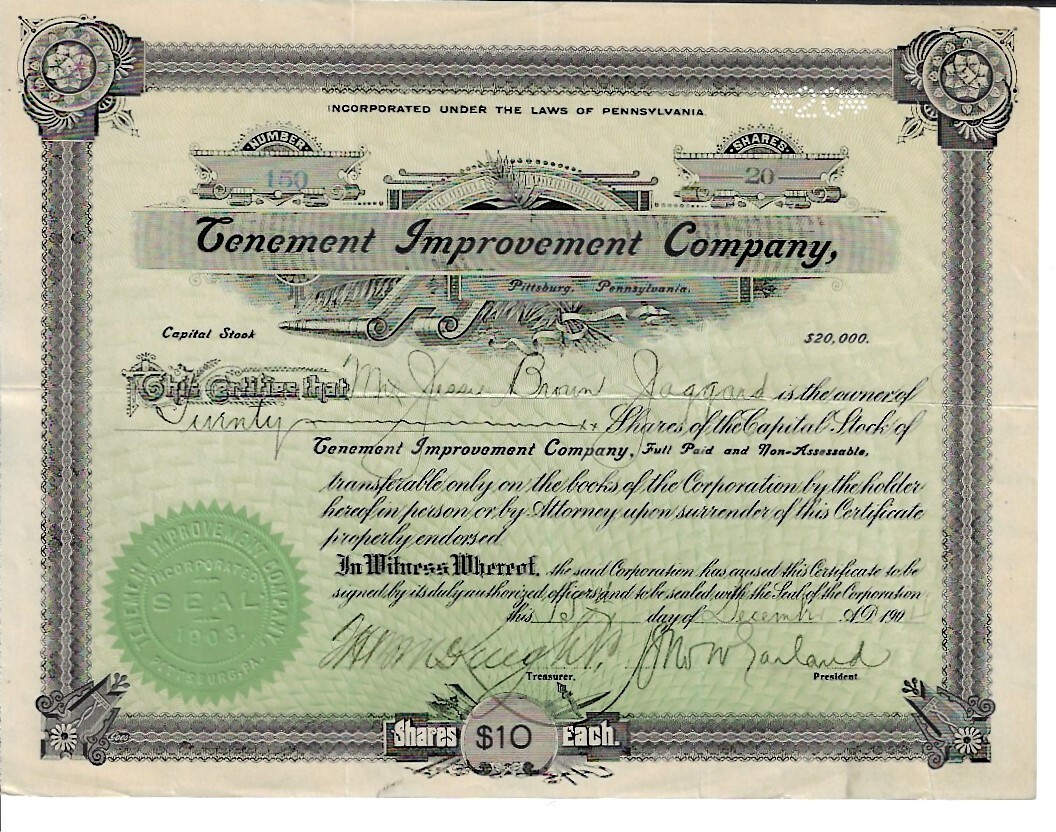 *20*
INCORPORATED UNDER THE LAWS OF PENNSYLVANIA
NUMBER
SHARES
150
20
Tenement Improvement Company,
Pittsburg, Pennsylvania.
Capital Stock
$20,000.
This Certifies that Mrs Jessie Brown Jaggard is the owner of
Twenty Shares of the Capital Stock of
Tenement Improvement Company, Full Paid and Non-Assessable,
transferable only on the books of the Corporation by the holder
hereof in person or by Attorney upon surrender of this Certificate
properly endorsed
In Witness Whereof, the said Corporation has caused this Certificate to be
signed by its duly authorized officers and to be sealed with the Seal of the Corporation
this day of December A.D. 190
Treasurer.
President
TENEMENT IMPROVEMENT COMPANY
INCORPORATED
SEAL
1903
PITTSBURG, PA.
Shares $10 Each.
Goes